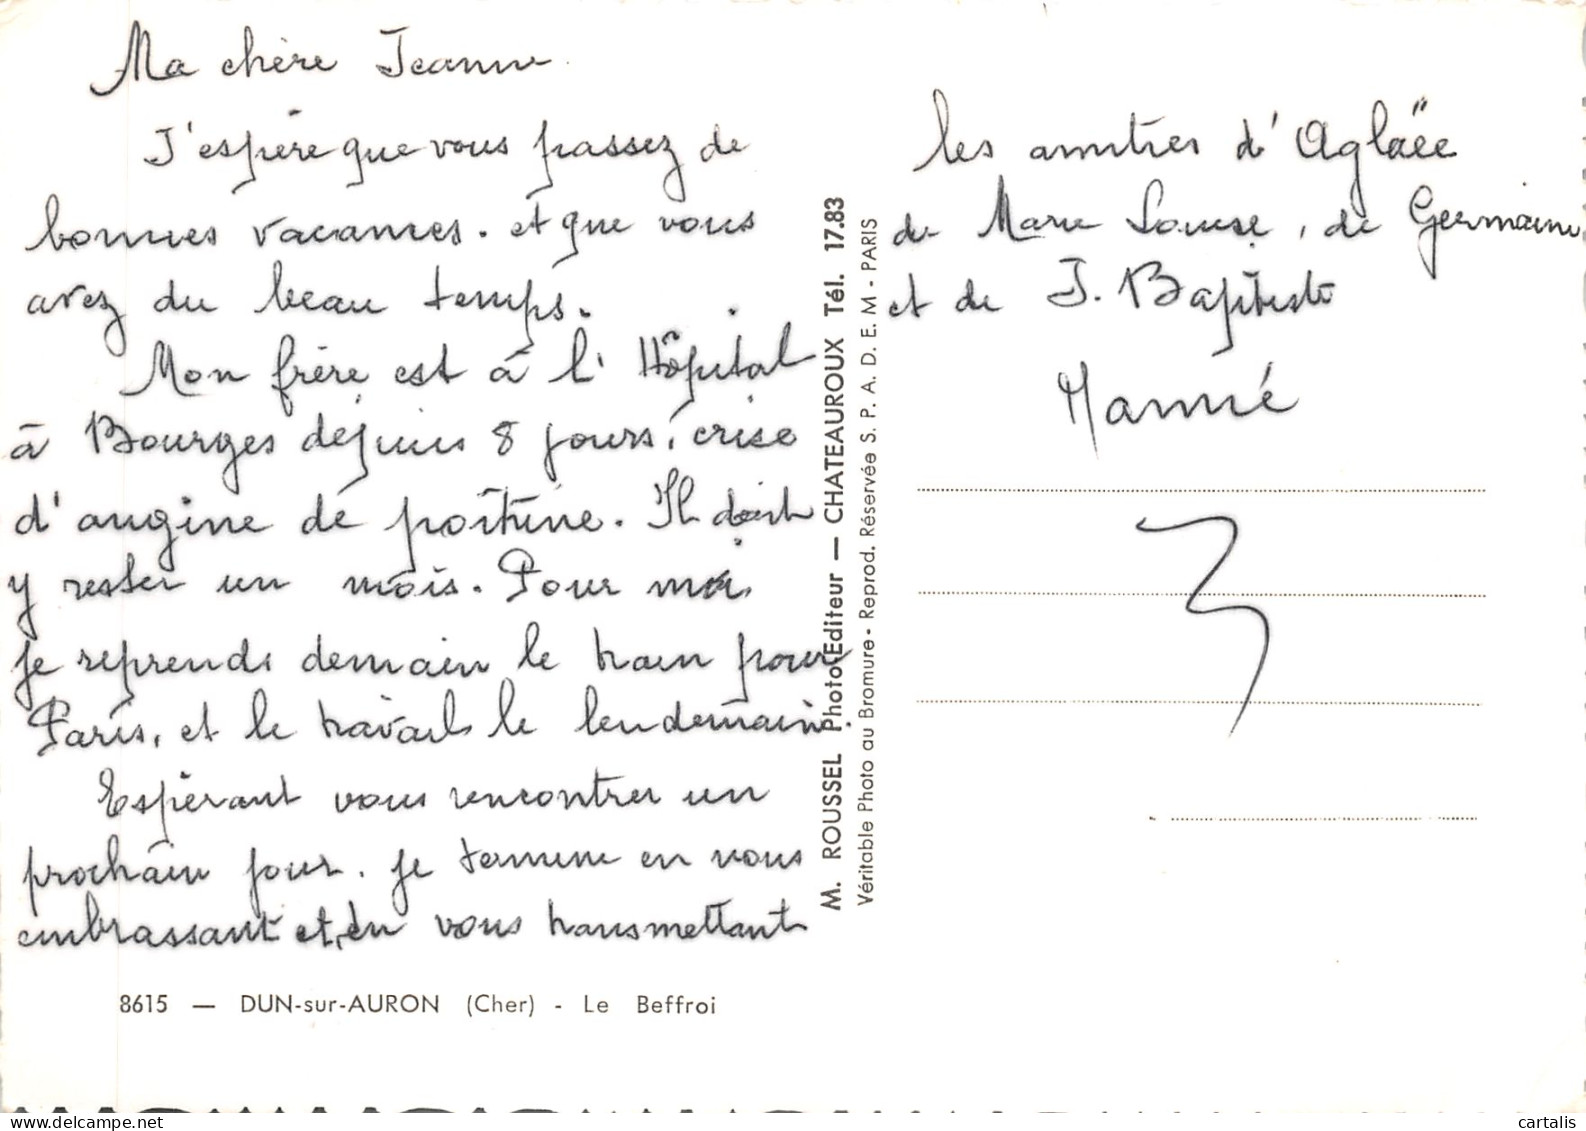 Ma chère Jeanne
J'espère que vous passez de
bonnes vacances. et que vous
avez du beau temps.
Mon frère est à l'Hôpital
à Bourges depuis 8 jours, crise
d'angine de poitrine. Il doit
y rester un mois. Pour moi,
je reprends demain le train pour
Paris, et le travail le lendemain.
Espèrant vous rencontrer un
prochain jour. je termine en vous
embrassant et, en vous transmettant
les amitiés d'Aglaëe
de Marie Louise, de Germaine
et de J. Baptiste
8615 — DUN-sur-AURON (Cher) - Le Beffroi
M. ROUSSEL Photo Editeur — CHATEAUROUX Tél. 17.83
Véritable Photo au Bromure - Reprod. Réservée S. P. A. D. E. M - PARIS
cartalis